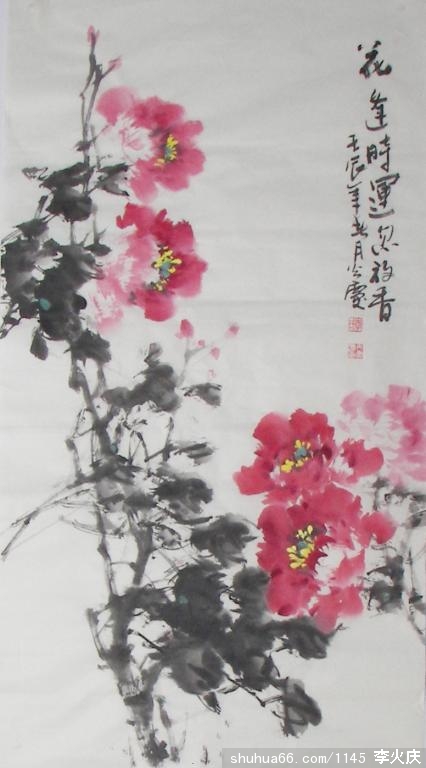 花逢時運放香
壬辰年月火慶
shuhua66.com/1145 李火庆